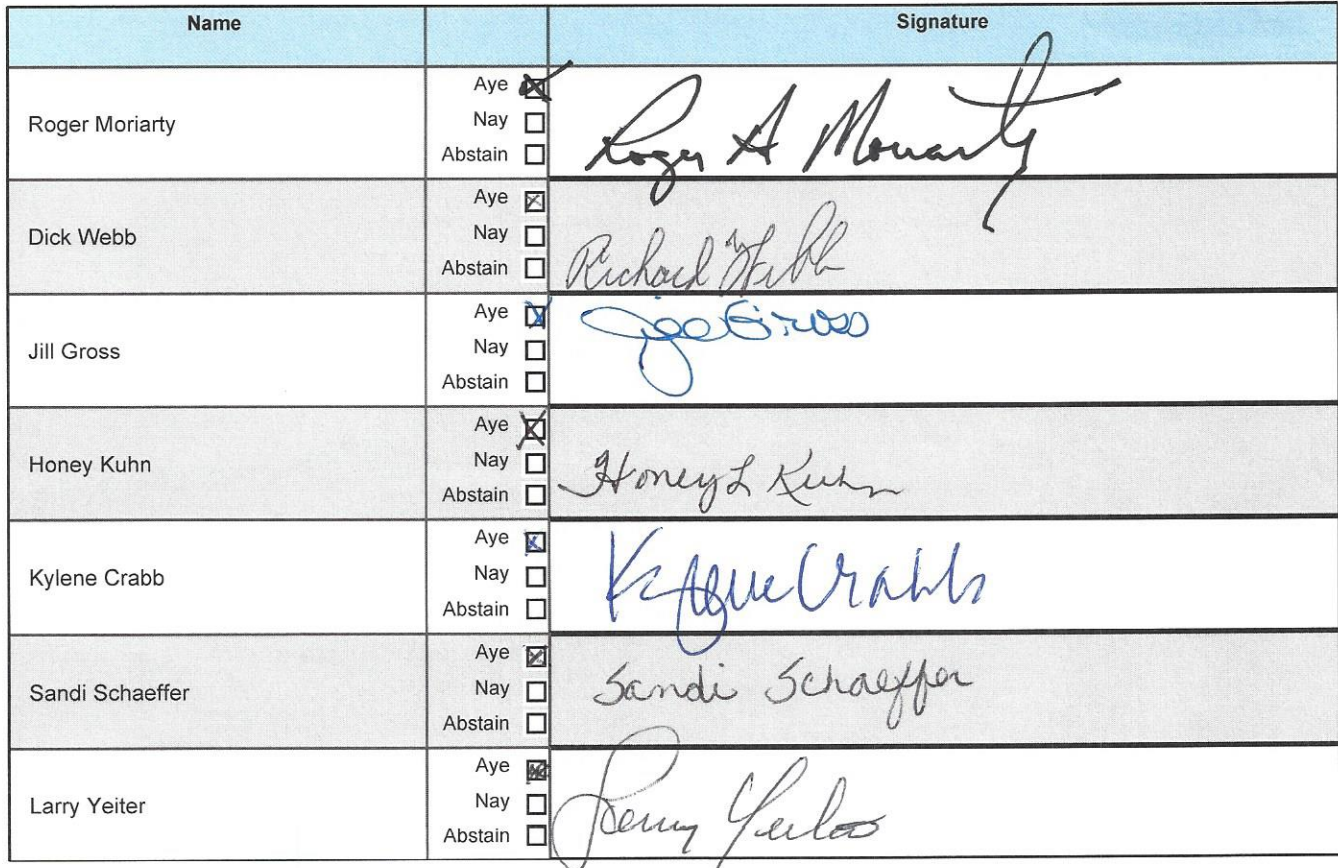 Name Signature
Roger Moriarty
Aye
Nay
Abstain
Roger A Moriarty
Dick Webb
Aye
Nay
Abstain
Richard Webb
Jill Gross
Aye
Nay
Abstain
Jill Gross
Honey Kuhn
Aye
Nay
Abstain
Honey L Kuhn
Kylene Crabb
Aye
Nay
Abstain
Kylene Crabb
Sandi Schaeffer
Aye
Nay
Abstain
Sandi Schaeffer
Larry Yeiter
Aye
Nay
Abstain
Larry Yeiter